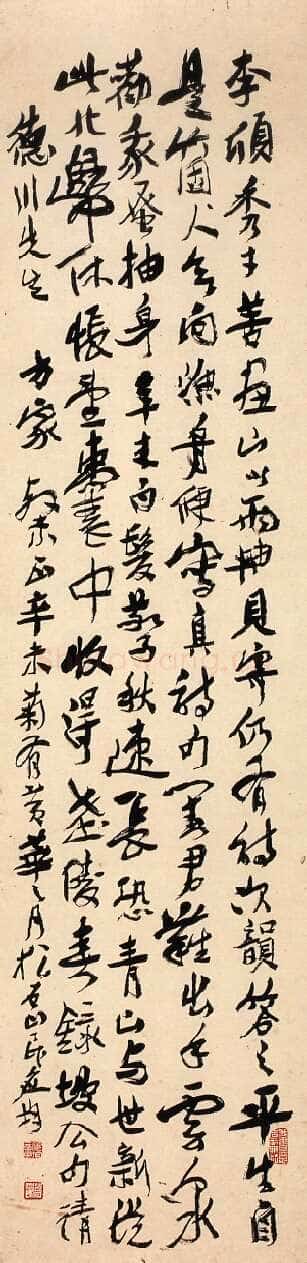 李頎秀才善畫山以兩軸見寄仍有詩次韻答之平生自
是箇人欲向漁舟便寫真詩句對君難出手雲泉
勸我蚤抽身年来白髮驚秋速長恐青山与世新從
此北歸休悵望囊中收得武陵春錄坡公句請
德川先生 方家 正辛未菊有黄華之月松石山民